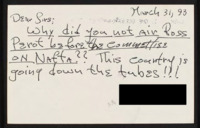 March 31, 93
Dear Sirs:
Why did you not air Ross
Perot before the committee
on Nafta?? This country is
going down the tubes!!!